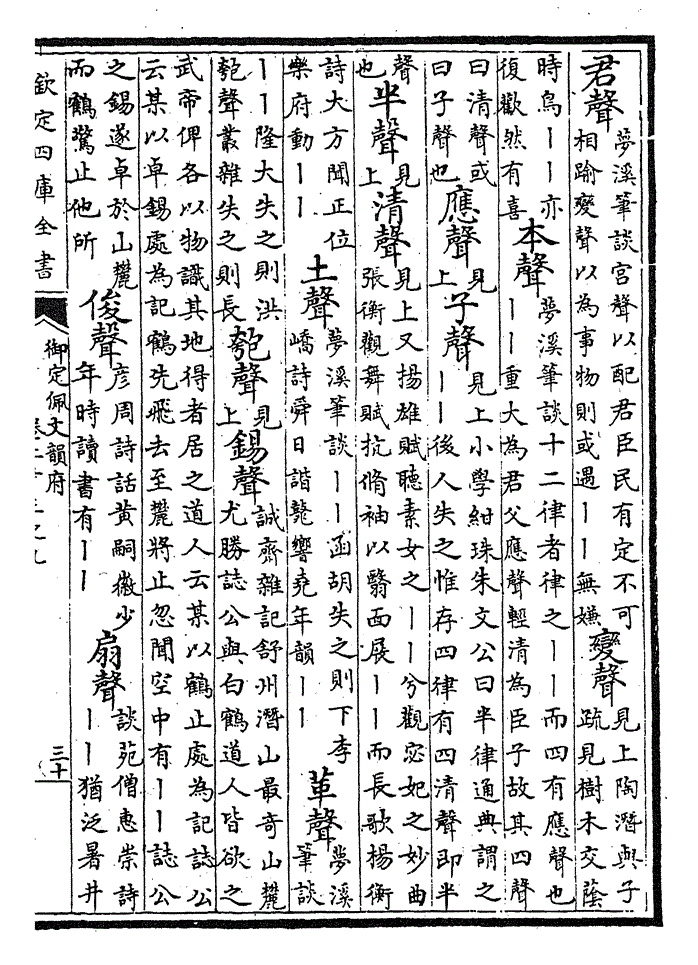 君聲夢溪筆談宮聲以配君臣民有定不可相踰變聲以為事物則或遇丨丨無嫌變聲見上陶潛與子疏見樹木交蔭
時鳥丨丨亦復歡然有喜本聲夢溪筆談十二律者律之丨丨而四有應聲也丨丨重大為君父應聲輕清為臣子故其四聲
曰清聲或曰子聲也應聲見上子聲見上小學紺珠朱文公曰半律通典謂之丨丨後人失之惟存四律有四清聲即半
聲也半聲見上清聲見上又揚雄賦聽素女之丨丨兮觀宓妃之妙曲張衡觀舞賦抗脩袖以翳面展丨丨而長歌楊衡
詩大方聞正位樂府動丨丨土聲夢溪筆談丨丨函胡失之則下李嶠詩舜日諧鼗響堯年韻丨丨革聲夢溪筆談
丨丨隆大失之則洪匏聲叢雜失之則長匏聲見上錫聲誠齋雜記舒州潛山最奇山麓尤勝誌公與白鶴道人皆欲之
武帝俾各以物識其地得者居之道人云某以鶴止處為記誌公云某以卓錫處為記鶴先飛去至麓將止忽聞空中有丨丨誌公
之錫遂卓於山麓而鶴驚止他所俊聲彦周詩話黄嗣徽少年時讀書有丨丨扇聲談苑僧惠崇詩丨丨猶泛暑井
欽定四庫全書
御定佩文韻府
三十